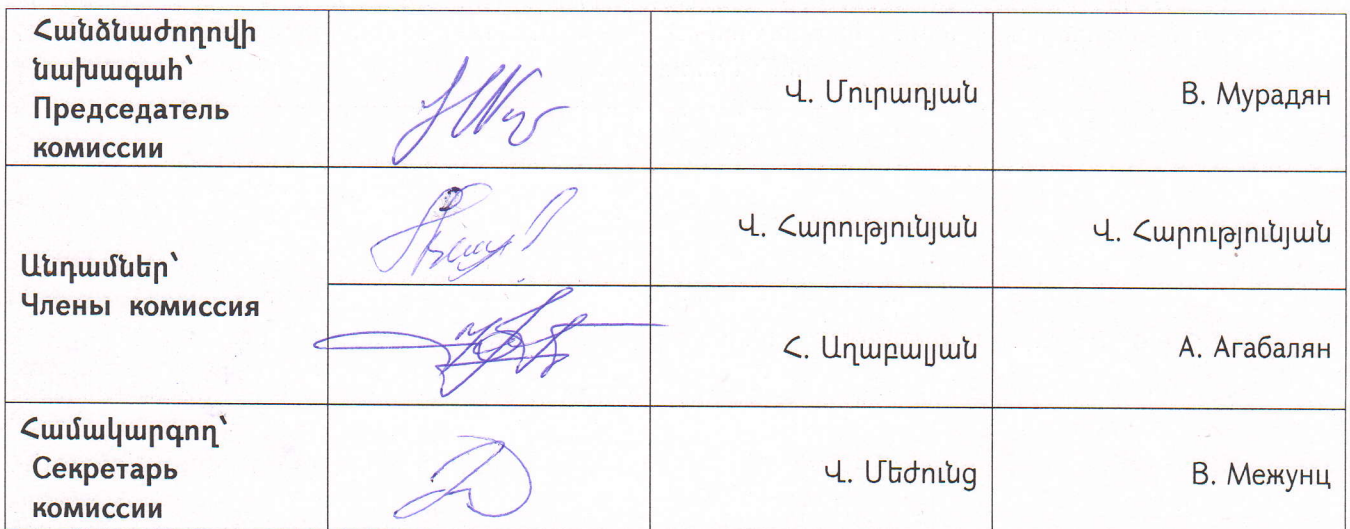 Հանձնաժողովի
նախագահ՝
Председатель
комиссии
Վ. Մուրադյան
В. Мурадян
Անդամներ՝
Члены комиссия
Վ. Հարությունյան
Վ. Հարությունյան
Հ. Աղաբալյան
А. Агабалян
Համակարգող՝
Секретарь
комиссии
Վ. Մեժունց
В. Межунц